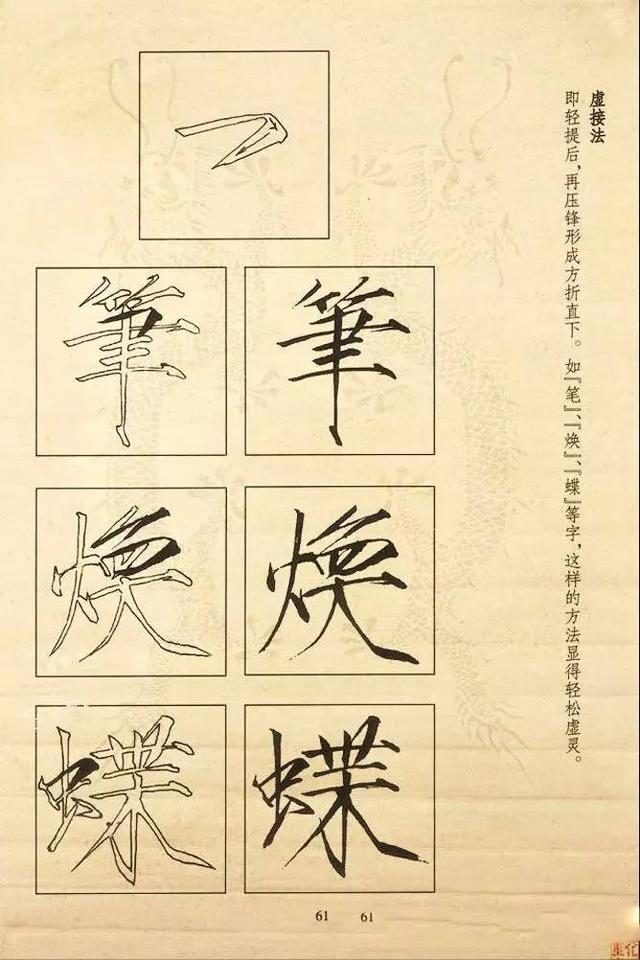 虚接法
即轻提后，再压锋形成方折直下。如『笔』、『焕』、『蝶』等字，这样的方法显得轻松虚灵。
筆 筆
焕 焕
蝶 蝶
61 61